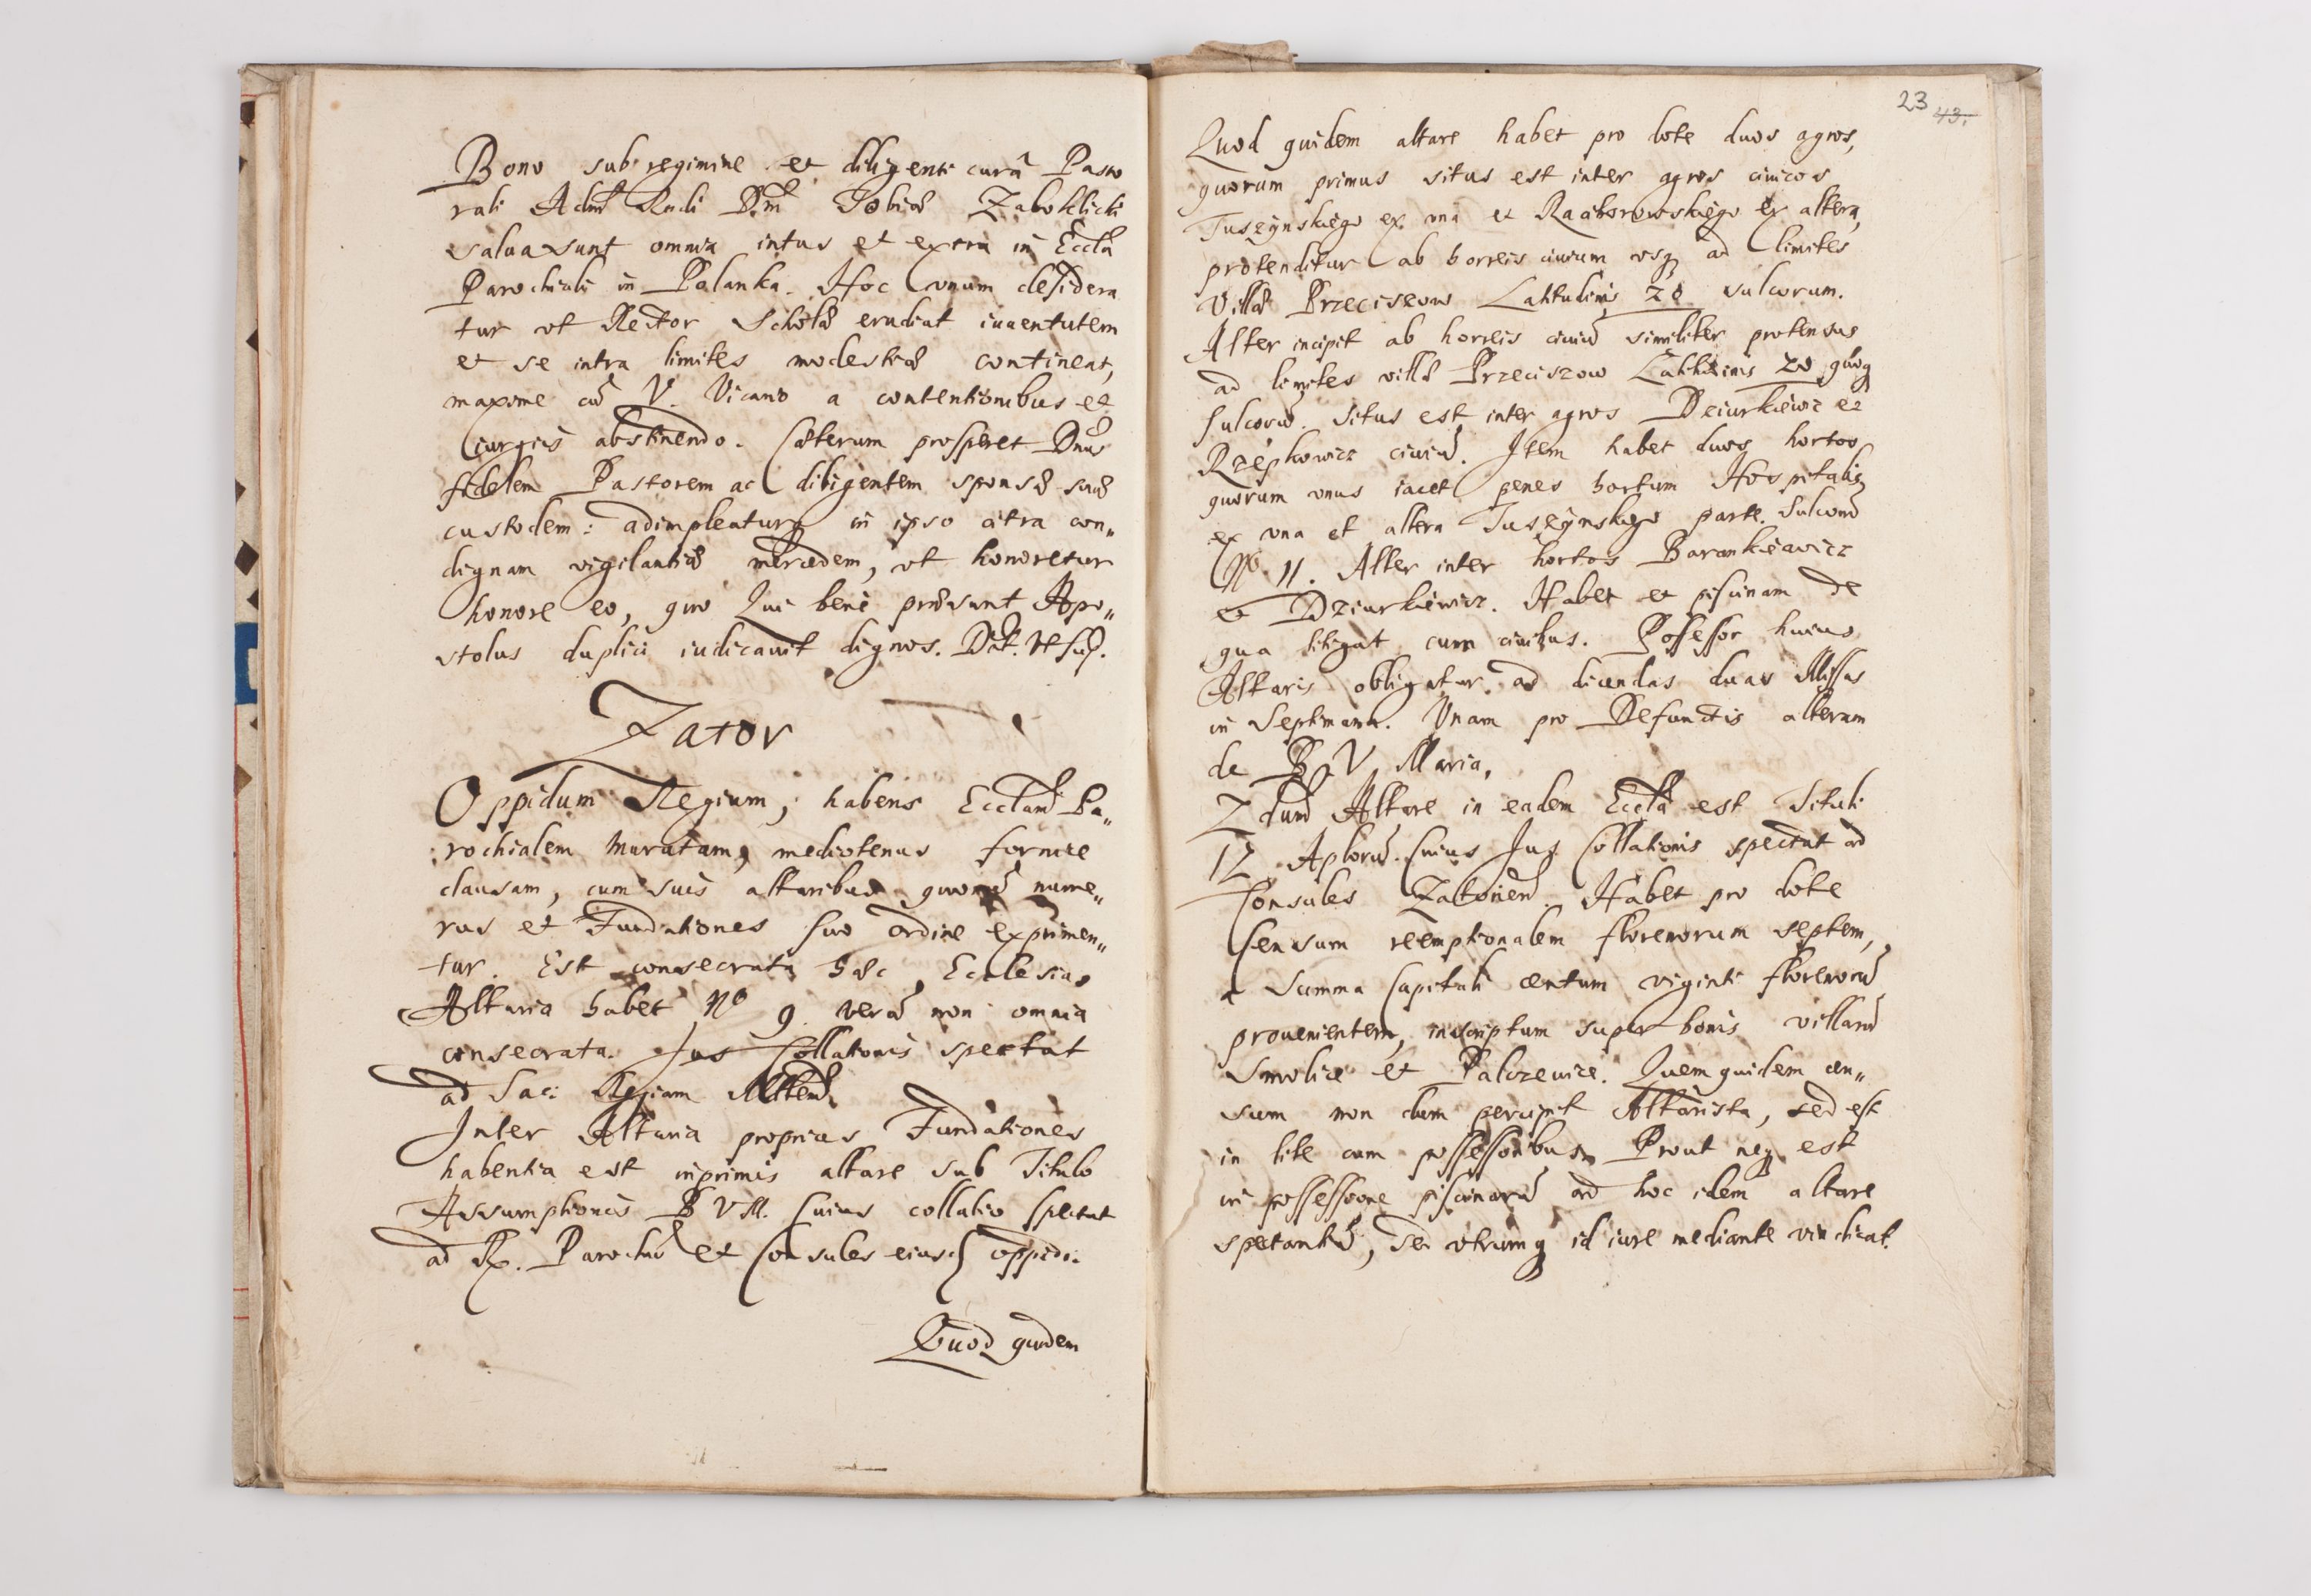 Bono sub regimine et diligenti curâ Pasto
rali Adm Rndi Dni Tobiæ Zaboklicki
salua sunt omnia intus et extra in Eccla
Parochiali in Polanka. Hoc vnum desidera
tur vt Rector Scholæ erudiat iuuentutem
et se intra limites modestiæ contineat,
maxime cũ V. Vicario a contentionibus et
iurgiis abstinendo. Cæterum prosperet Dnus
fidelem Pastorem ac diligentem sponsæ suæ
custodem: adimpleaturq in ipso citra con„
dignam vigilantiæ mercedem, vt honoretur
honore eo, quo Qui benè præsunt Apo„
stolus duplici iudicauit dignos. Dat. Vt sup.
Zator
Oppidum Regium, habens Ecclam Pa„
rochialem muratam, mediotenus fornice
clausam, cum suis altaribus quorũ nume„
rus et Fundationes suo ordine exprimen„
tur. Est consecrata hæc Ecclesia,
Altaria habet No 9 verũ non omnia
consecrata. Jus Collationis spectat
ad Sac: Regiam Mttem.
Inter Altaria proprias Fundationes
habentia est inprimis altare sub Titulo
Assumptionis B V M. Cuius collatio spectat
ad R. Parochũ et Consules eiusd oppidi.
Quod quidem
23 43.
Quod quidem altare habet pro dote duos agros,
quorum primus situs est inter agros ciuicos
Tuszynskiego ex vna et Raciborowskiego ex altera,
protenditur ab horreis ciuium vsq ad limites
Villæ Przeciszow Latitudinis 28 sulcorum.
Alter incipit ab horreis ciuiũ similiter protensus
ad limites villæ Przeciszow Latitudinis 20 quoq
sulcorũ. Situs est inter agros Dziurkiewicz et
Rzepkowicz ciuiũ. Item habet duos hortos
quorum vnus iacet penes hortum Hospitalis
ex vna et altera Tuszynskiego parte. Sulcorũ
No. 11. Alter inter hortos Barankiewicz
et Dziurkiewicz. Habet et piscinam de
qua litigat cum ciuibus. Possessor huius
Altaris obligatur ad dicendas duas Missas
in Septimana. Vnam pro Defunctis alteram
de B. V. Maria.
2dum Altare in eadem Eccla est Tituli
12 Aplorũ. Cuius Jus Collationis spectat ad
Consules Zatorien. Habet pro dote
Censum reemptionalem florenorum septem,
a Summa Capitali centum viginti florenorũ
prouenientem, inscriptum super bonis villarũ
Smolice et Palczowice. Quem quidem cen„
sum non dum percipit Altarista, sed est
in lite cum possessoribus. Prout neq est
in possessione piscinarũ ad hoc idem altare
spectantiũ, sed vtrumq id iure mediante vindicat.